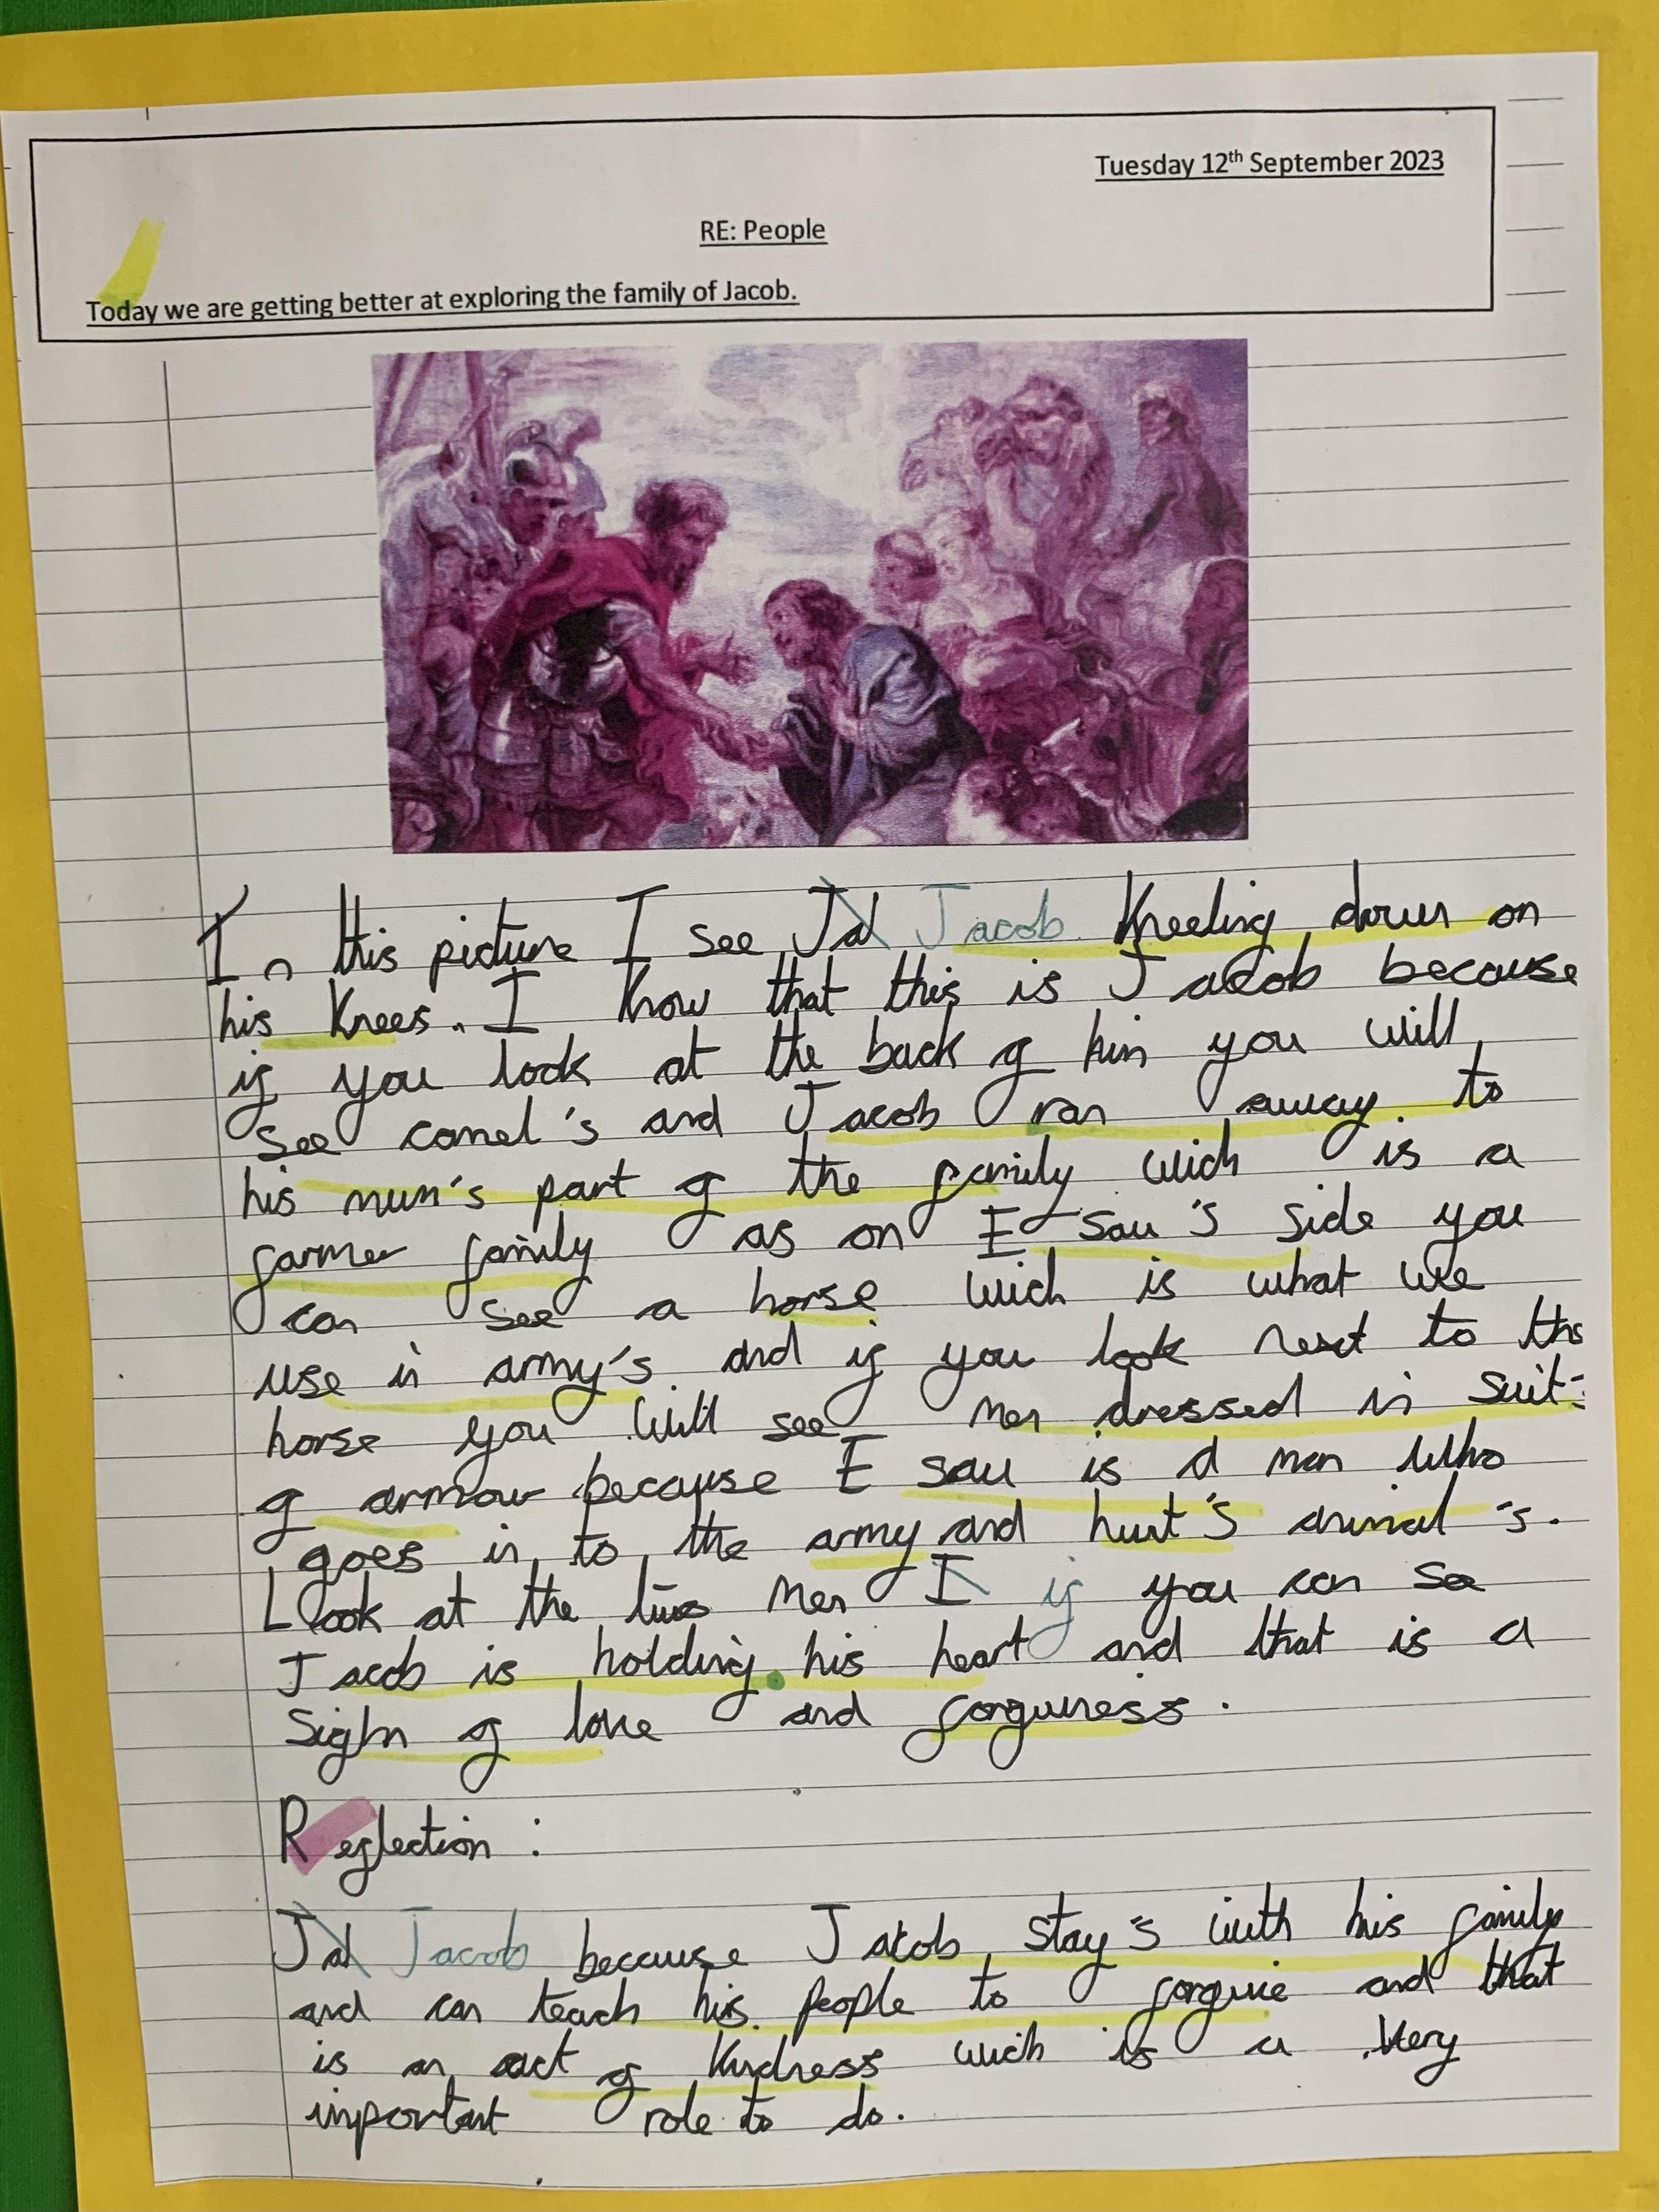 Tuesday 12th September 2023
RE: People
Today we are getting better at exploring the family of Jacob.
In this picture I see Jacob Kneeling down on
his Knees. I Know that this is Jacob because
if you look at the back of him you will
see camel's and Jacob ran away to
his mum's part of the family wich is a
farmer family as on E sau's side you
can see a horse wich is what we
use in army's and if you look next to the
horse you will see men dressed in suit
of armour because E sau is a man who
goes in to the army and hunt's animal's.
Look at the two men if you can see
Jacob is holding his heart and that is a
Sighn of love and forguiness.
Reflection :
Jacob because Jacob stay's with his family
and can teach his people to forguie and that
is an act of Kindness wich is a Very
important role to do.